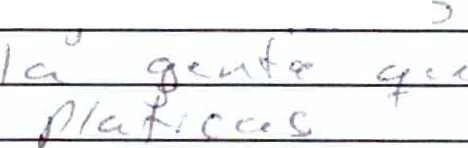 la gente que
platicas